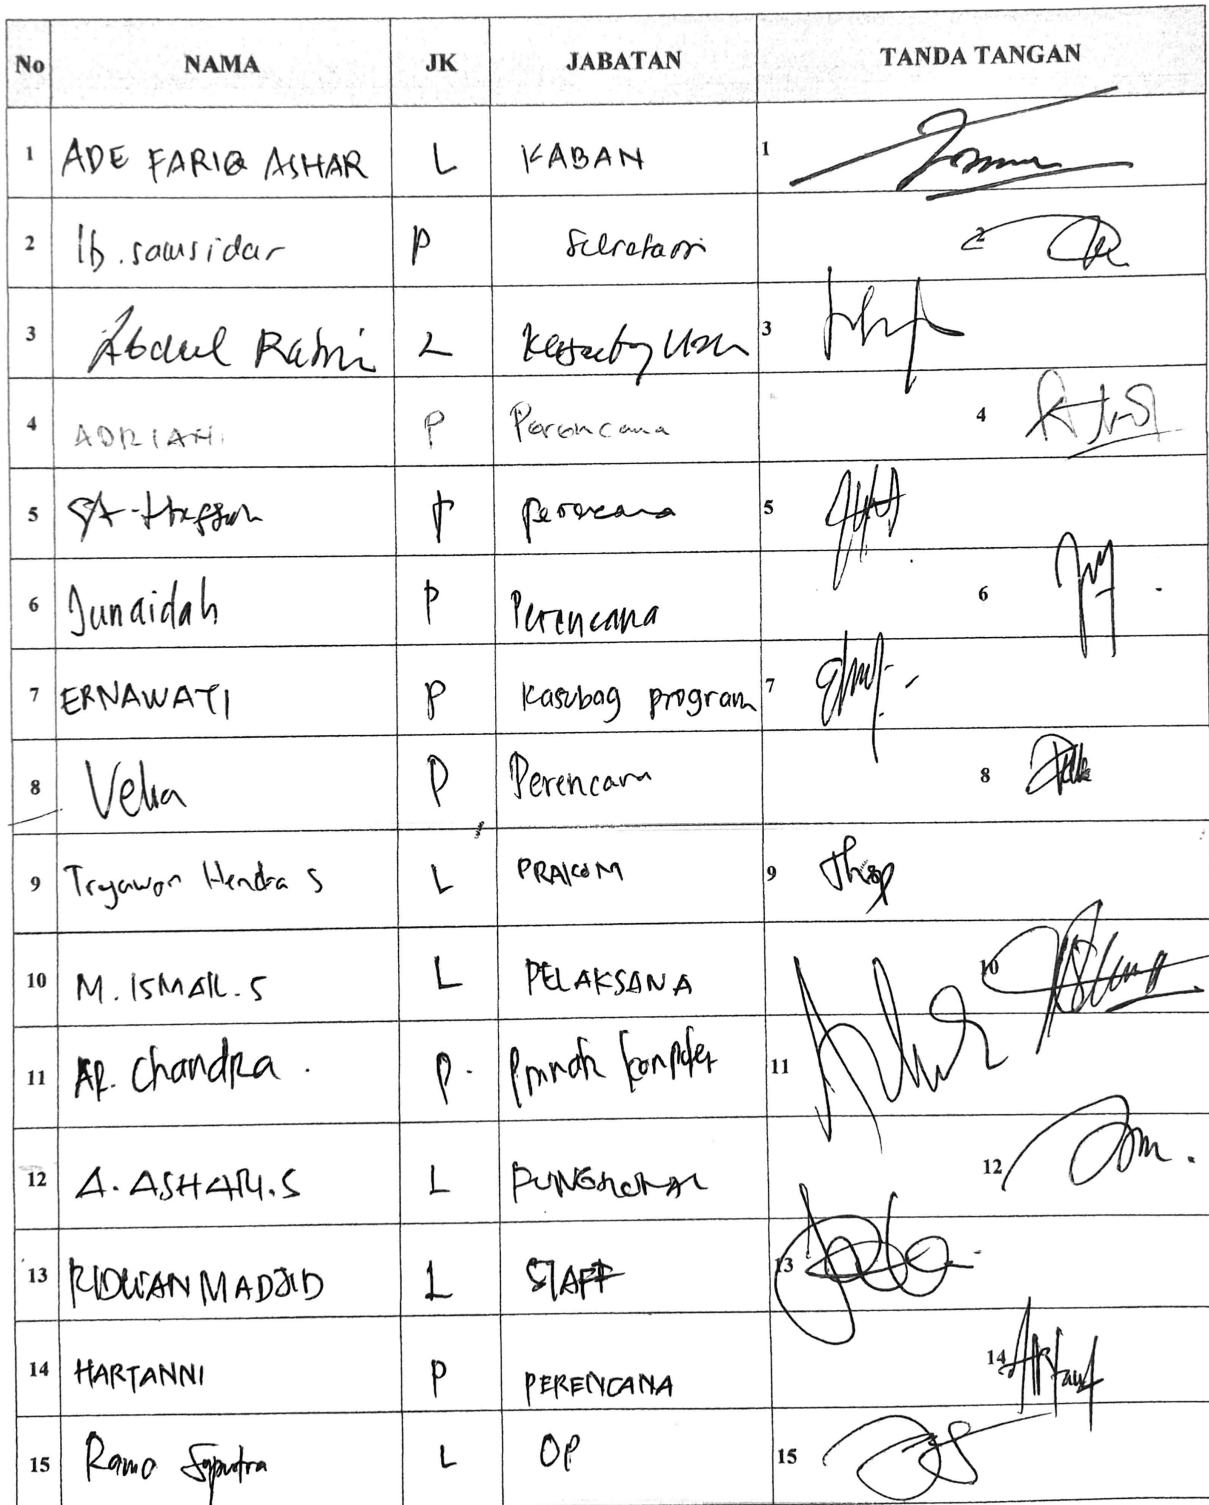 No NAMA JK JABATAN TANDA TANGAN
1 ADE FARIQ ASHAR L KABAN 1
2 Ib. samsidar P Sekretaris 2
3 Abdul Rahim L Kasubag Umum 3
4 ADRIANI P Perencana 4
5 P perencana 5
6 Junaidah P Perencana 6
7 ERNAWATI P Kasubag program 7
8 Velia P Perencana 8
9 Tryawan Hendra S L PRAKOM 9
10 M. ISMAIL. S L PELAKSANA 10
11 AR. Chandra. P. komputer 11
12 A. ASHARI. S L FUNGSIONAL 12
13 RIDWAN MADJID L STAFF 13
14 HARTANNI P PERENCANA 14
15 Rama Saputra L OP 15